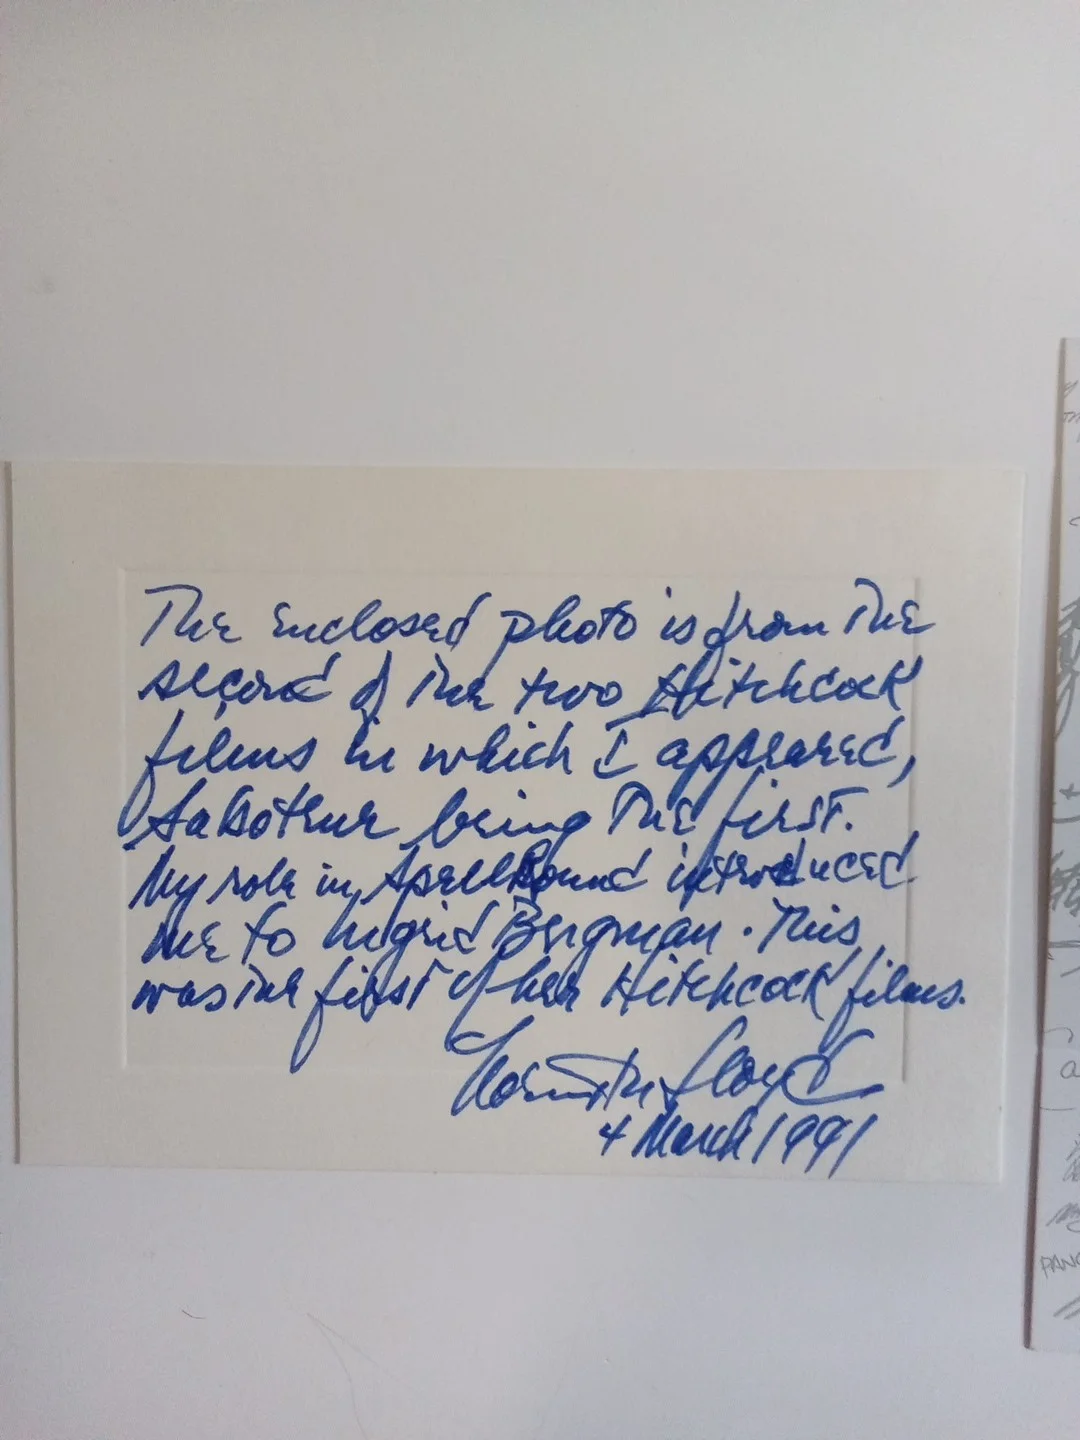 The enclosed photo is from the
second of the two Hitchcock
films in which I appeared,
Saboteur being the first.
My role in Spellbound introduced
me to Ingrid Bergman. This
was the first of her Hitchcock films.
Norman Lloyd
4 March 1991
PANC